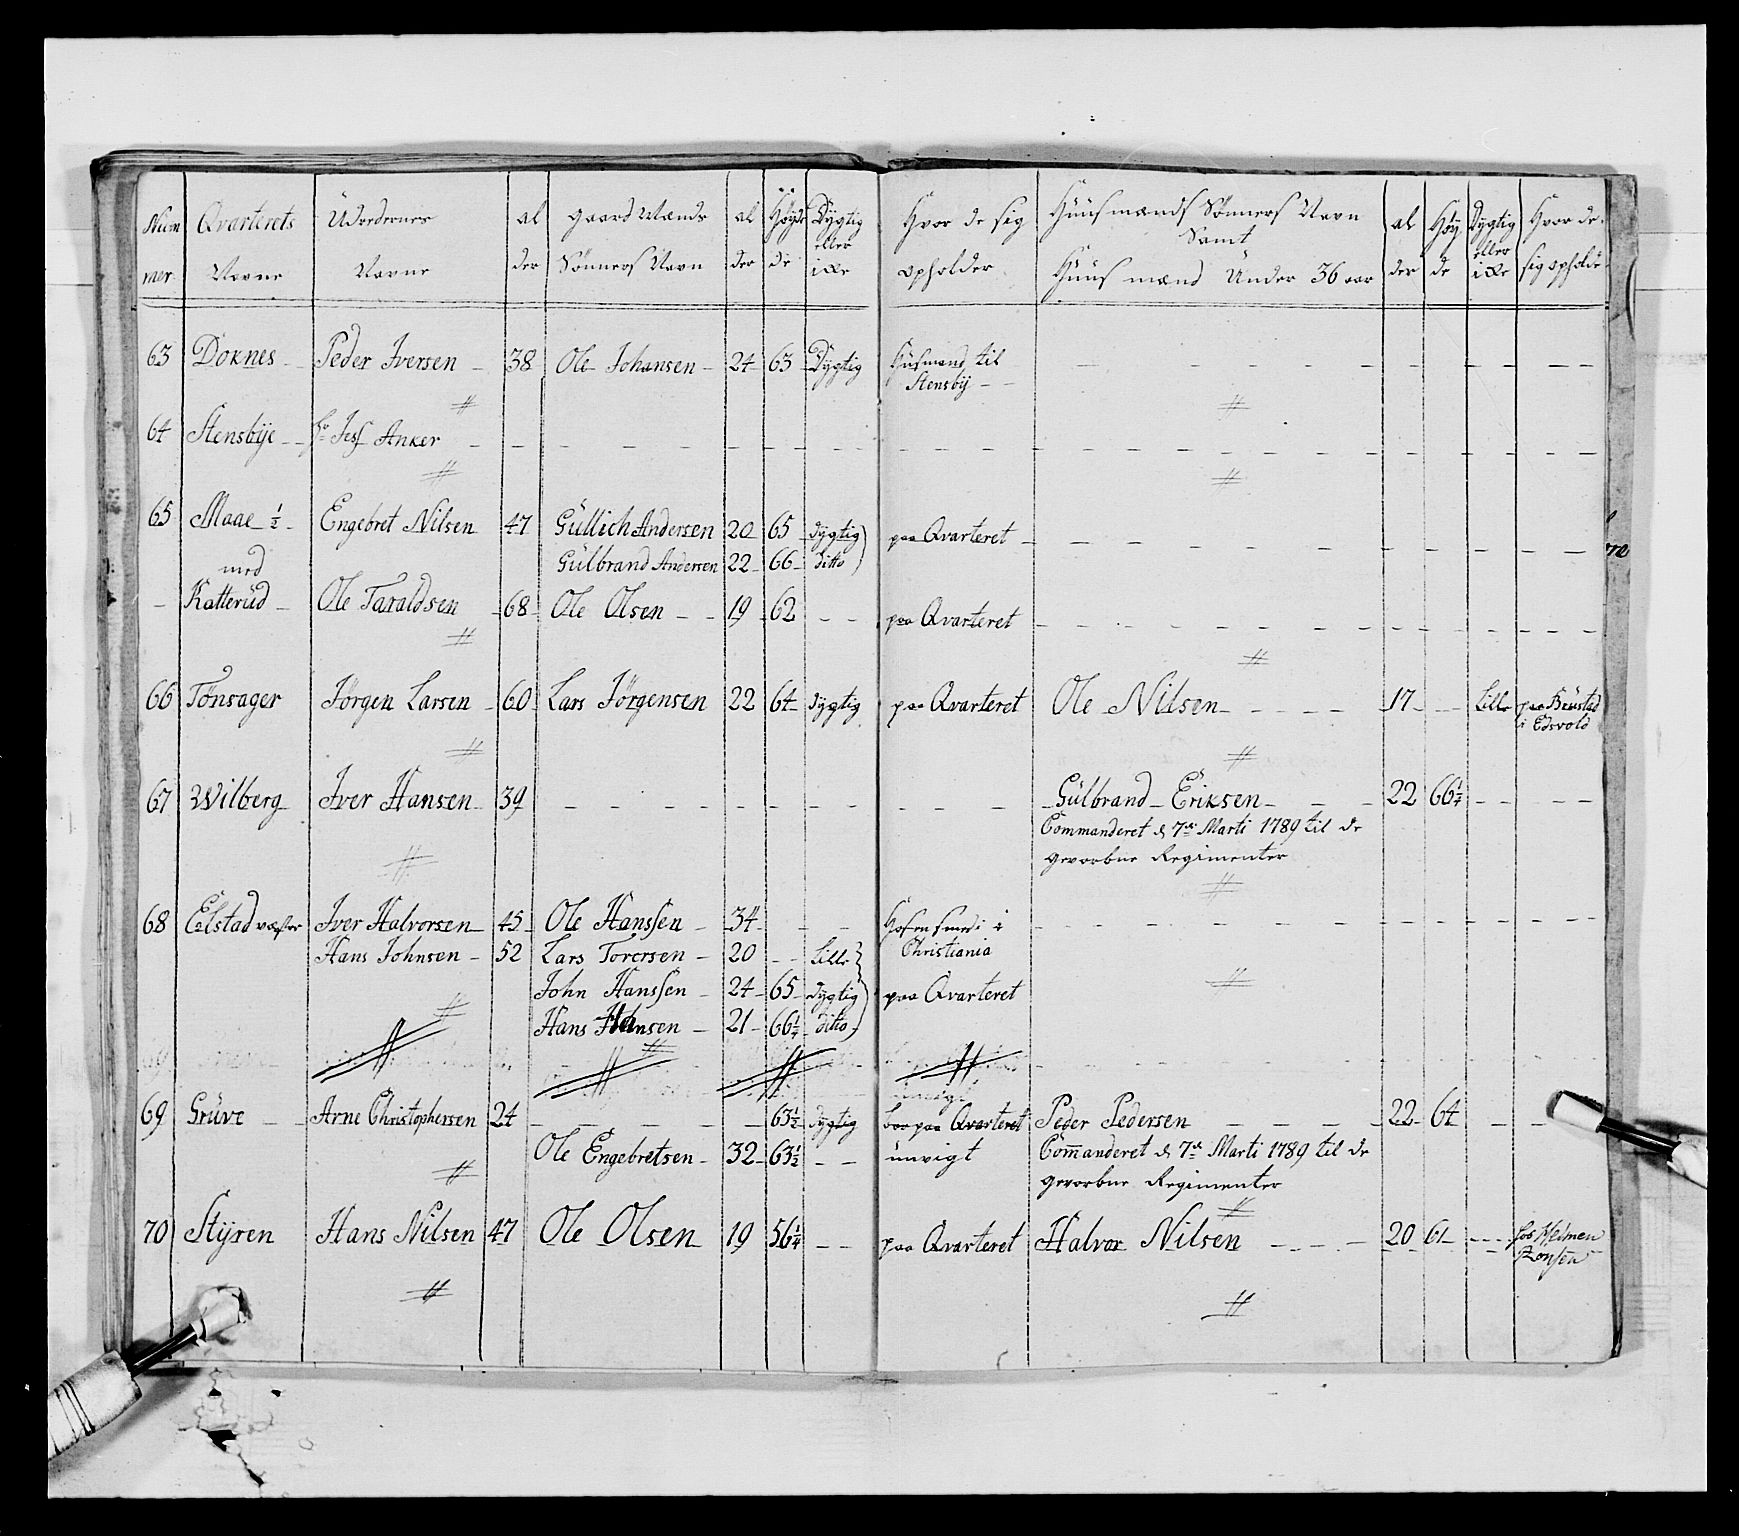 Num Qvarterets Udredernes al gaard Mænds al Höyde Dygtig Hvor de sig Huusmænds Sönners Navn al Höy Dygtig Hvor de
eller Samt eller
mer Navne Navne der Sönners Navn der de icke opholder Huus mænd Under 36 aar der de icke sig opholde
63 Doknes Peder Iversen 38 Ole Johansen 24 63 Dygtig Huusmand til
Stensbÿ
64 Stensbÿe Hr Jess Anker
65 Maae ½ Engebret Nilsen 47 Güllich Andersen 20 65 dygtig paa Qvarteret
med Gülbrand Andersen 22 66 ditto
Katterüd Ole Taraldsen 68 Ole Olsen 19 62 paa Qvarteret
66 Tönsager Jörgen Larsen 60 Lars Jörgensen 22 64 dygtig paa Qvarteret Ole Nilsen 17 Lille paa
i Edsvold
67 Wilberg Iver Hansen 39 Gülbrand Eriksen 22 66¼
Commanderet d 7de Marti 1789 til de
gevorbne Regimenter
68 Eilstad væster Iver Halvorsen 45 Ole Hanssen 34 i
Hans Johnsen 52 Lars Torersen 20 Lille Christiania
John Hanssen 24 65 dygtig paa Qvarteret
Hans Hansen 21 66¼ ditto
69 Grüve Arne Christophersen 24 63½ dygtig boe paa Qvarteret Peder Pedersen 22 64
Ole Engebretsen 32 63½ unvigt Commanderet d 7de Marti 1789 til de
gevorbne Regimenter
70 Stÿren Hans Nilsen 47 Ole Olsen 19 56¼ paa Qvarteret Halvor Nilsen 20 61 hos